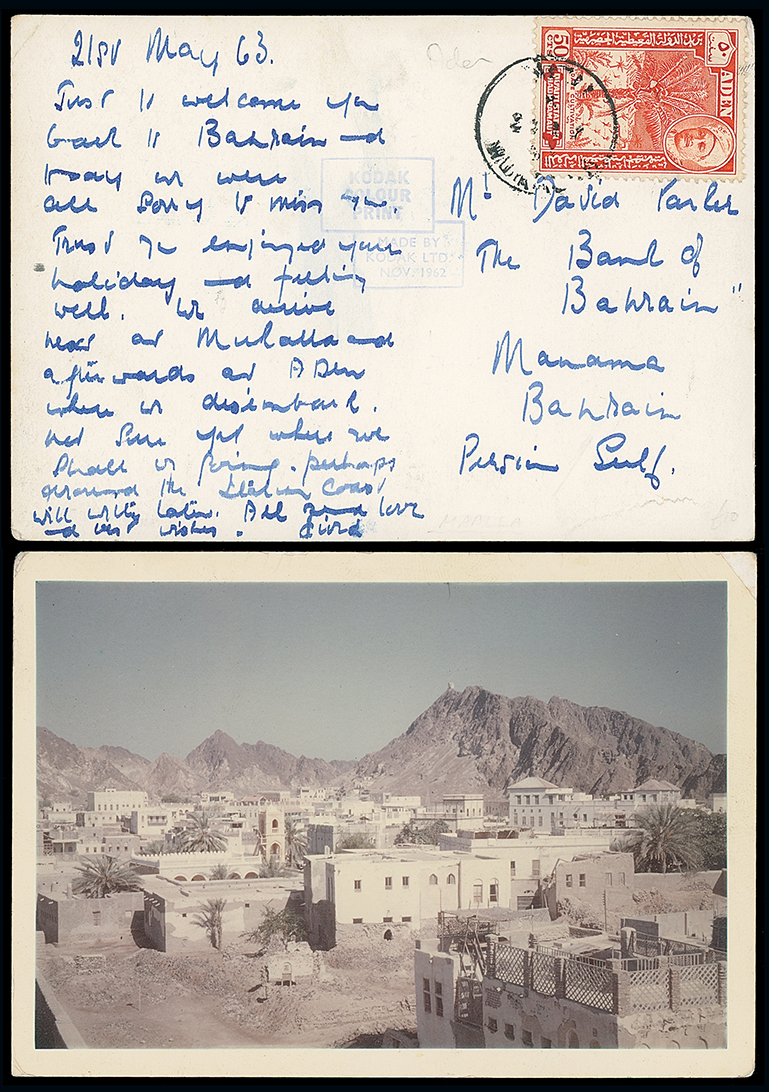 21st May 63.
Aden
Just to welcome you
back to Bahrain and
to say we were
all sorry to miss you.
Trust you enjoyed your
holiday and feeling
well. We arrive
next at Mukalla and
afterwards at Aden
where we disembark.
not sure yet where we
shall be going. perhaps
around the Italian Coast
will write later. All love
and best wishes.
KODAK
COLOUR
PRINT
MADE BY
KODAK LTD.
NOV. 1962
50
CTS
ADEN
٥٠
Mr David
The Bank of
Bahrain"
Manama
Bahrain
Persian Gulf.